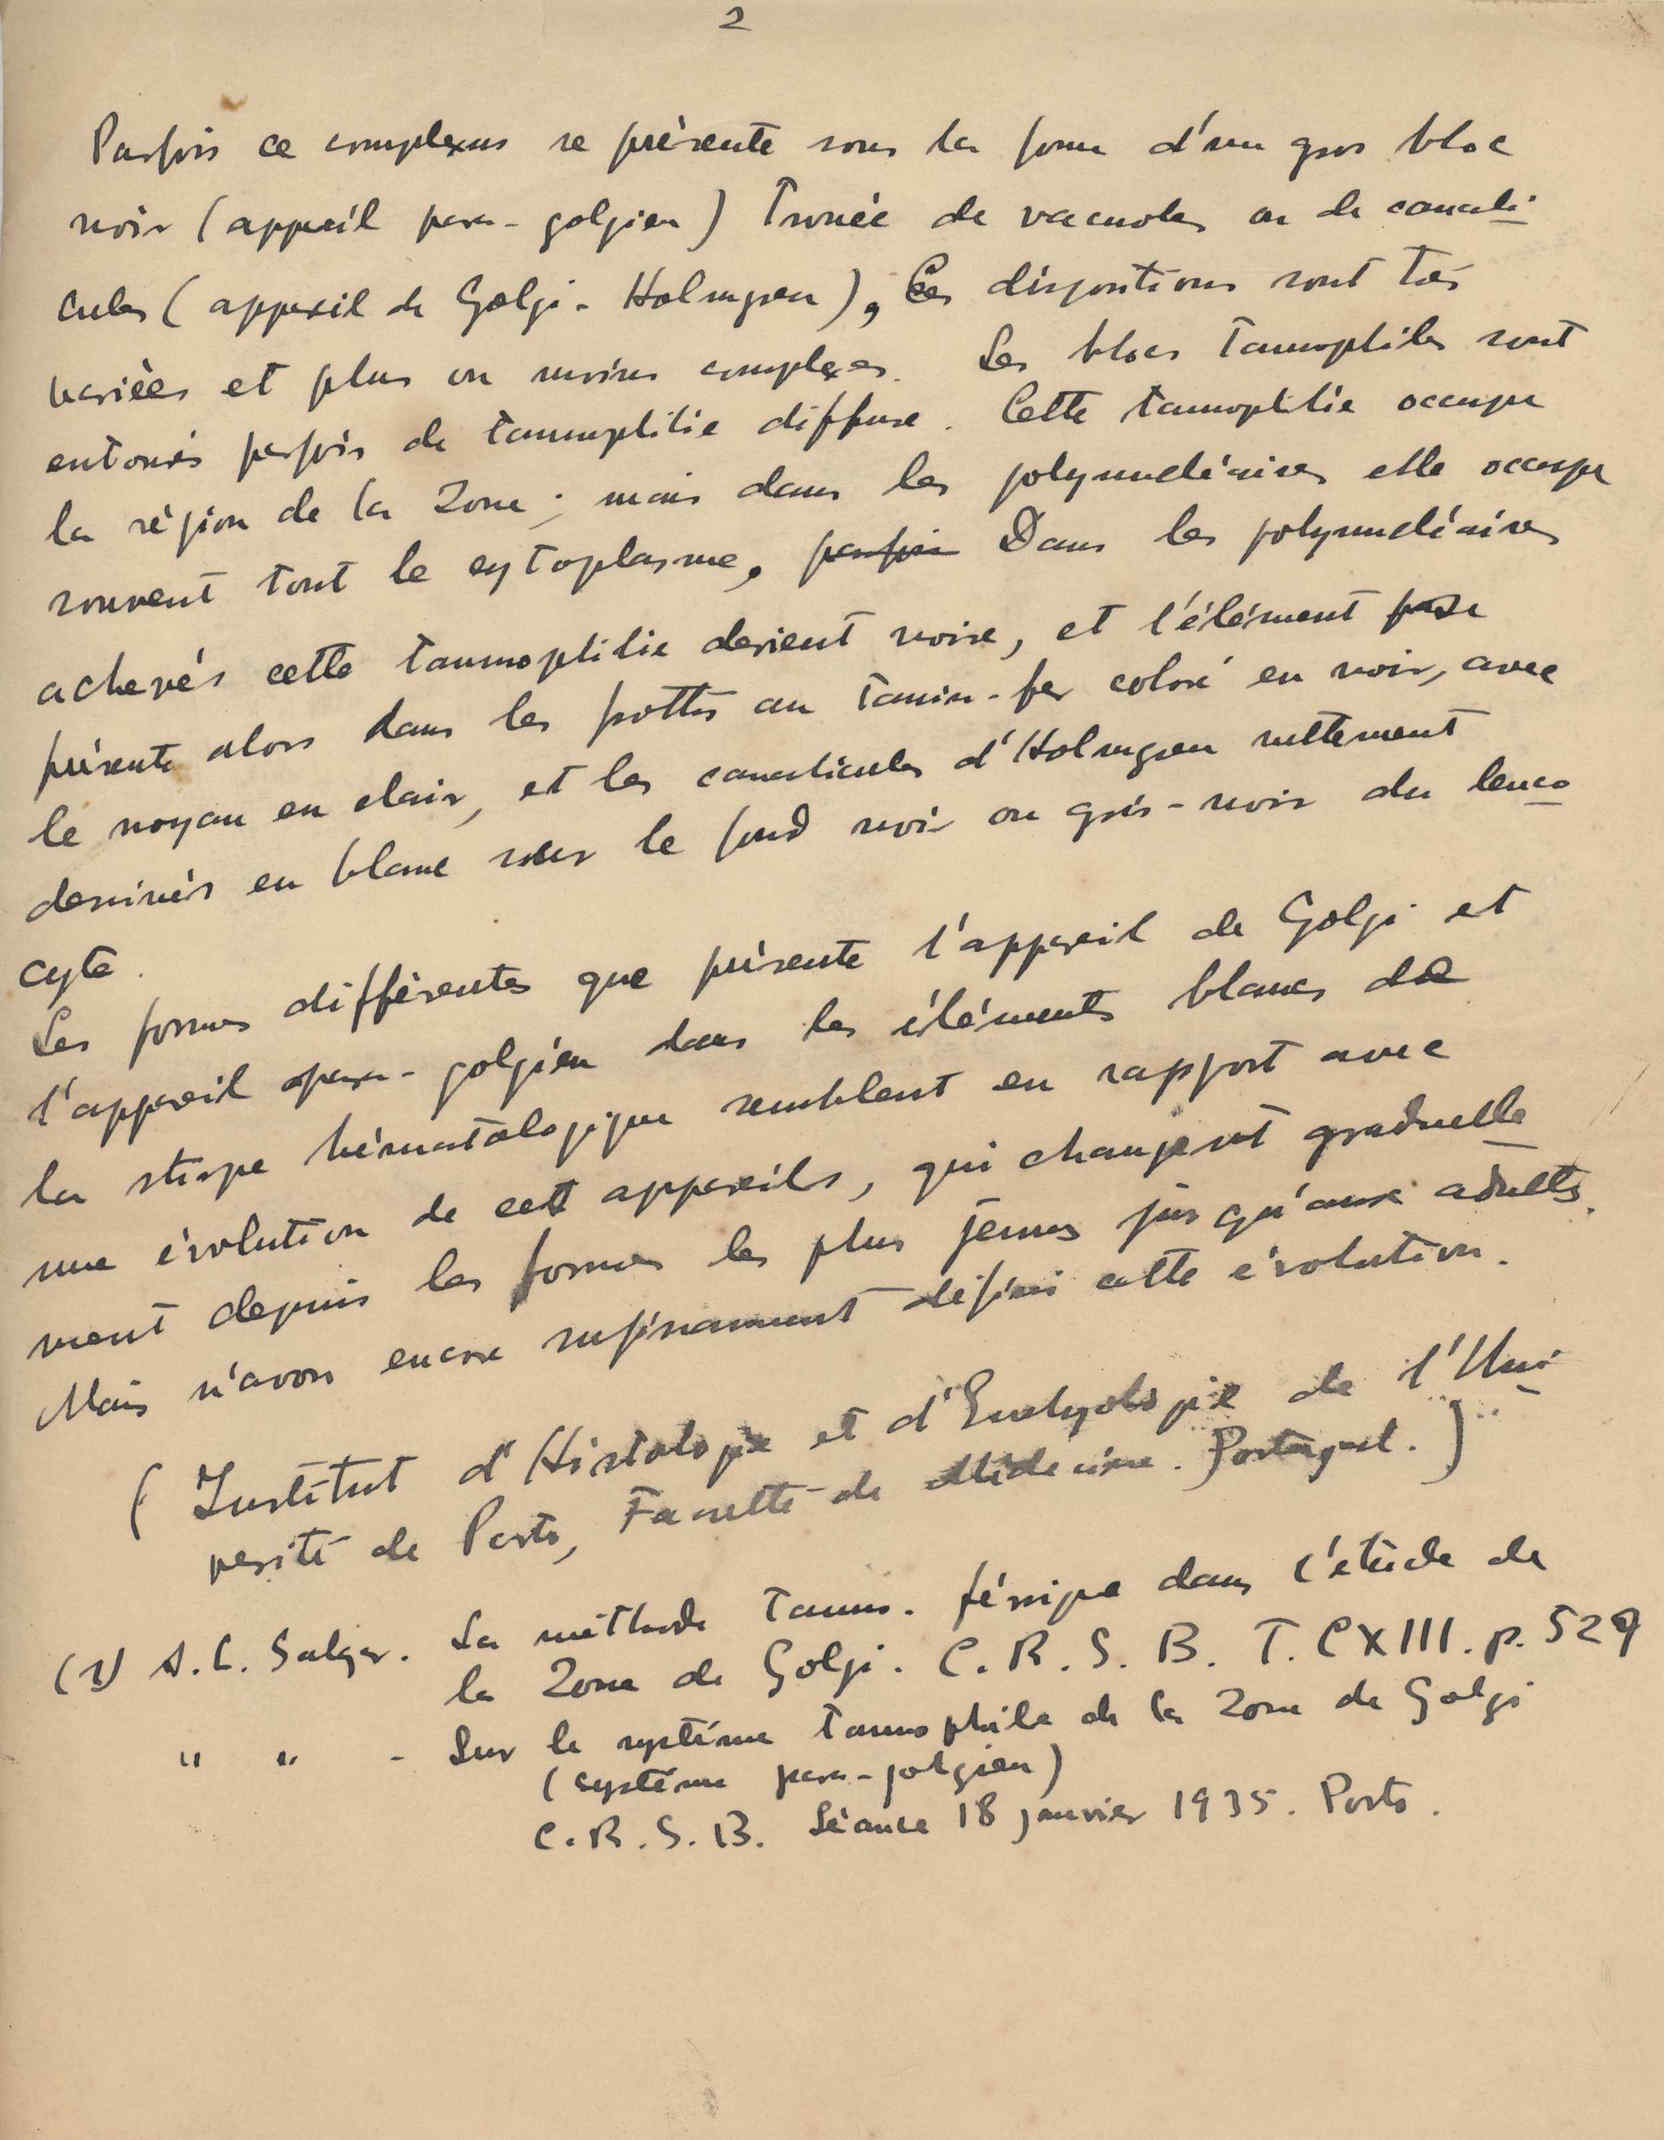 2
Parfois ce complexus se présente sous la forme d'un gros bloc
noir (appareil para-golgien) Troué de vacuoles ou de canali-
cules (appareil de Golgi-Holmgren), Ces dispositions sont très
variées et plus ou moins complexes. Les blocs tannophiles sont
entourés parfois de tannophilie diffuse. Cette tannophilie occupe
la région de la Zone; mais dans les polynucléaires elle occupe
souvent tout le cytoplasme. parfois Dans les polynucléaires
achevés cette tannophilie devient noire, et l'élément se
présente alors dans les frottis au Tanin-fer coloré en noir, avec
le noyau en clair, et les canalicules d'Holmgren nettement
dessinés en blanc sur le fond noir ou gris-noir du leuco
cyte.
Les formes différentes que présente l'appareil de Golgi et
l'appareil para-golgien dans les éléments blancs de
la stirpe hématologique semblent en rapport avec
une évolution de cet appareils, qui changent graduelle
ment depuis les formes les plus jeunes jusqu'aux adultes.
Mais n'avons encore suffisamment défini cette évolution.
(Institut d'Histologie et d'Embryologie de l'Uni-
versité de Porto, Faculté de Médecine. Portugal.)
(1) A. C. Salazar. La méthode Tanno-férrique dans l'étude de
la Zone de Golgi. C. R. S. B. T. CXIII. p. 529
" " - Sur le système tannophile de la Zone de Golgi
(système para-golgien)
C. R. S. B. Séance 18 janvier 1935. Porto.